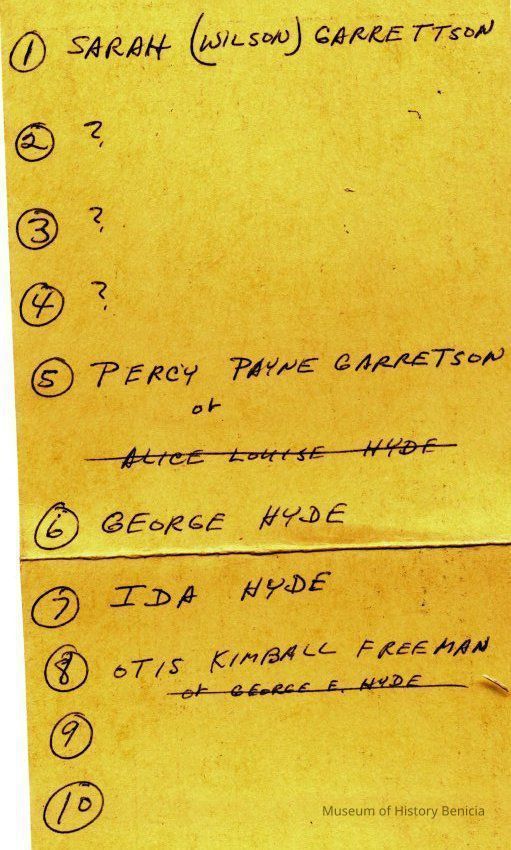 ① SARAH (WILSON) GARRETTSON
② ?
③ ?
④ ?
⑤ PERCY PAYNE GARRETSON
or
ALICE LOUISE HYDE
⑥ GEORGE HYDE
⑦ IDA HYDE
⑧ OTIS KIMBALL FREEMAN
or GEORGE E. HYDE
⑨
⑩
Museum of History Benicia